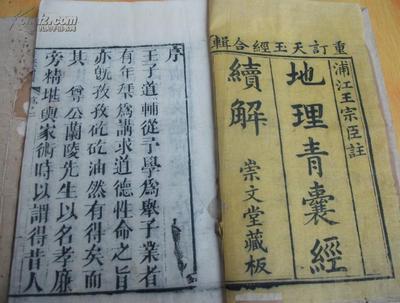 重訂天玉經合輯
浦江王宗臣註
地理青囊經
續解
崇文堂藏板
序
王子道輔從予學爲舉子業者
有年矣爲講求道德性命之旨
亦旣孜孜矻矻油然有得矣而
其尊公蘭陵先生以名孝廉
旁精堪輿家術時以謂得昔人